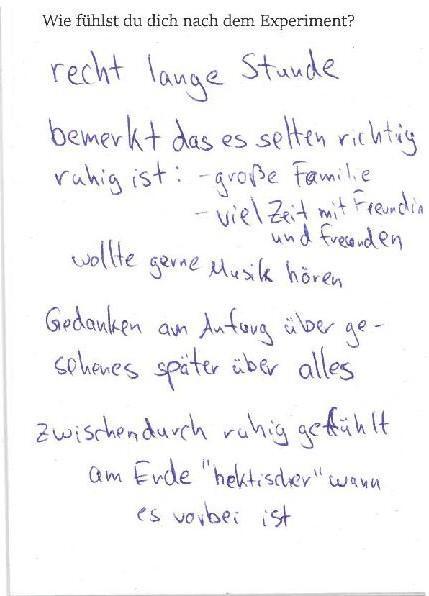 Wie fühlst du dich nach dem Experiment?
recht lange Stunde
bemerkt das es selten richtig
ruhig ist: - große Familie
- viel Zeit mit Freundin
und Freunden
wollte gerne Musik hören
Gedanken am Anfang über ge-
sehenes später über alles
zwischendurch ruhig gefühlt
am Ende "hektischer" wann
es vorbei ist